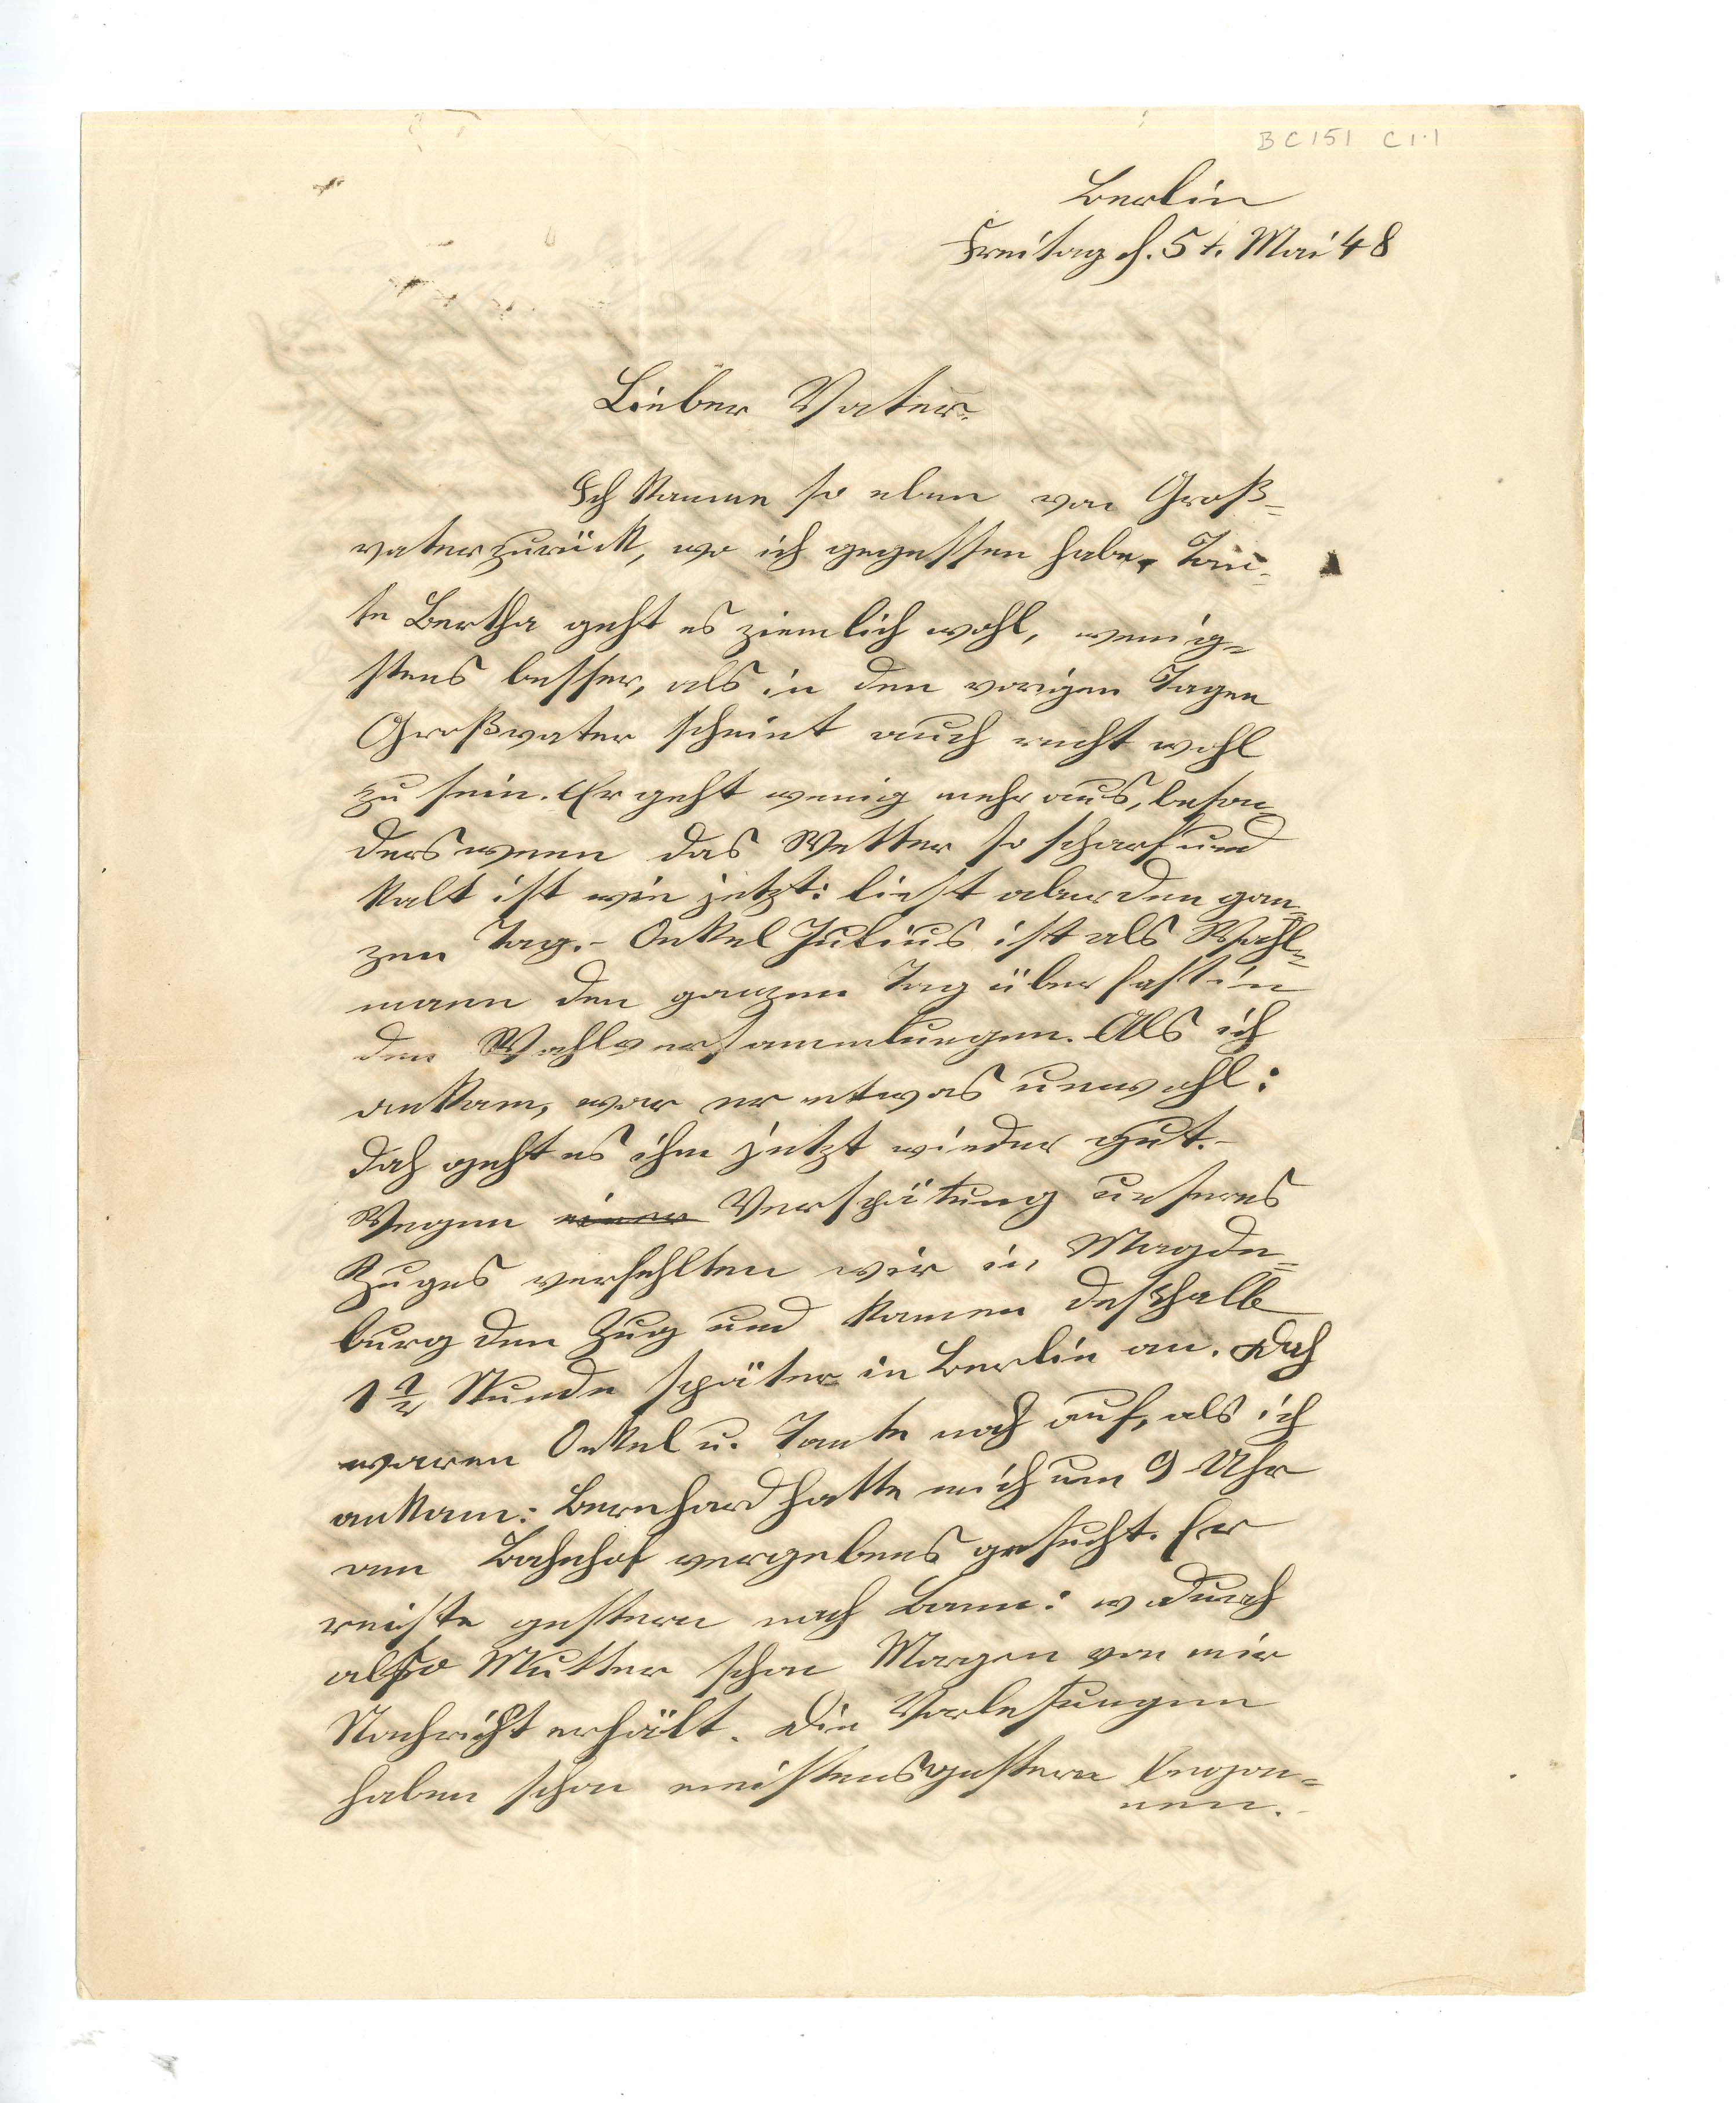 BC151 C1.1
Berlin
Freitag d. 5t. Mai 48
Lieber Vater.
Ich komme so eben von Groß=
vater zurück, wo ich gegessen habe. Tan=
te Bertha geht es ziemlich wohl, wenig=
stens besser, als in den vorigen Tagen
Großvater scheint auch recht wohl
zu sein. Er geht wenig mehr aus, beson=
ders wenn das Wetter so scharf und
kalt ist wie jetzt: liest aber den gan=
zen Tag. - Onkel Julius ist als Wahl=
mann den ganzen Tag über fast in
den Wahlversammlungen. Als ich
ankam, war er etwas unwohl:
doch geht es ihm jetzt wieder gut. -
Wegen einer Verspätung unseres
Zuges verfehlten wir in Magde=
burg den Zug und kamen deßhalb
1 1/2 Stunde später in Berlin an. Doch
waren Onkel u. Tante noch auf, als ich
ankam: Bernhard hatte mich um 9 Uhr
am Bahnhof vergebens gesucht. Er
reiste gestern nach Bonn: wodurch
also Mutter schon Morgen von mir
Nachricht erhält. Die Vorlesungen
haben schon meistens gestern begon=
nen. -